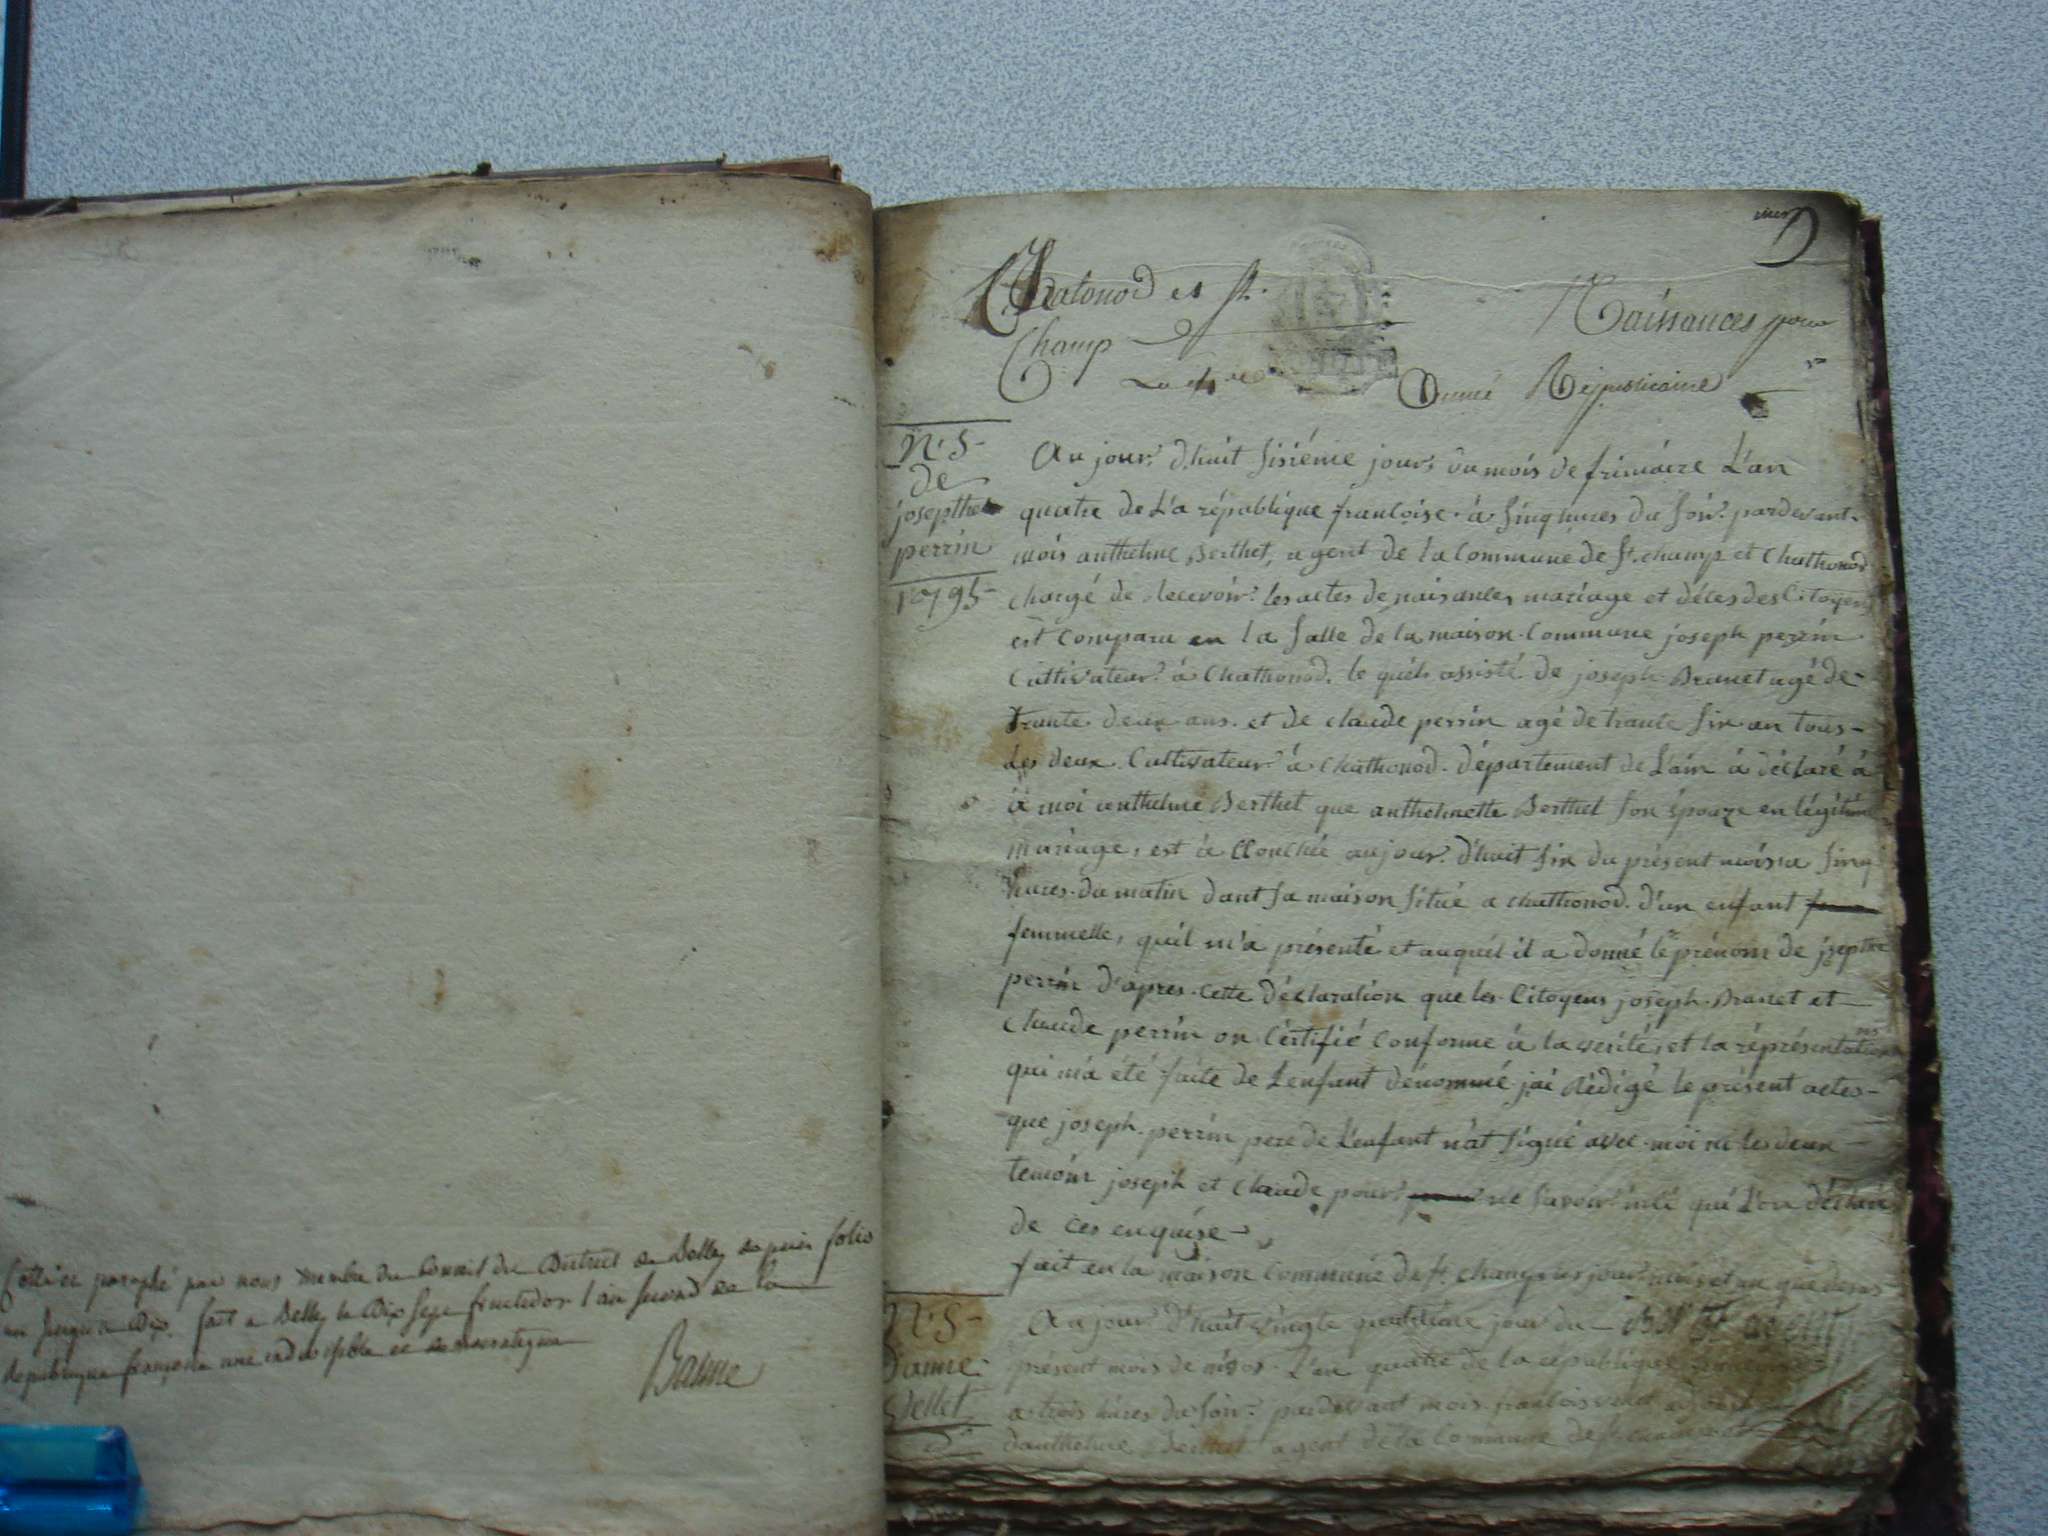 Cotté et paraphé par nous membre du Conseil du District de Belley du premier folio
un jusqu'a Dix. fait a Belley le Dix sept fructidor l'an second de la
Republique françoise une indivisible et democratique
Balme
Chatonod et St.
Champ
Naissances pour
La 4me
Année Républicaine
N. S
de
josepthe
perrin
1795
Au jour d'huit sisiéme jour du mois de frimaire L'an
quatre de L'a république francoise. à sinq hures du soir pardevant
mois anthelme Berthet, agent de la Commune de St. champ et Chathonod
chargé de recevoir les actes de naisances mariage et déces des Citoyens
est Comparu en la salle de la maison Commune joseph perrin
Cultivateur à Chathonod. le quél assisté de joseph Brunet agé de
trante deux ans. et de claude perrin agé de trante six an tous
Les deux Cultivateur à Chathonod. département de L'ain à déclaré à
à moi anthelme Berthet que anthelmette Berthet son épouze en légitime
mariage, est à ccouchée aujour d'huit six du présent mois a sinq
hures du matin dant sa maison situé a chathonod. d'un enfant
femmelle, quil m'a présenté et auquél il a donné le prénom de jsepthe
perrin d'apres cette déclaration que les Citoyens joseph Brunet et
Claude perrin on cértifié Conforme à la verité, et la réprésentation
qui m'a été faite de L'enfant dénommé jai rédigé le présent actes
que joseph perrin pere de L'enfant n'at signé avec moi ni les deux
temoin joseph et Claude pour ne savoir qui L'on déclaré
de ces enquise
fait en la maison Commune de St. champ les jour mois et an que desus
N. S
D'anne
Vellet
Au jour d'huit vingte quatriéme jour du
présent mois de nivos. L'an quatre de la république
a trois hures du soir pardevant mois francois
d'anthelme Berthet agent de la Commune de St. champ et